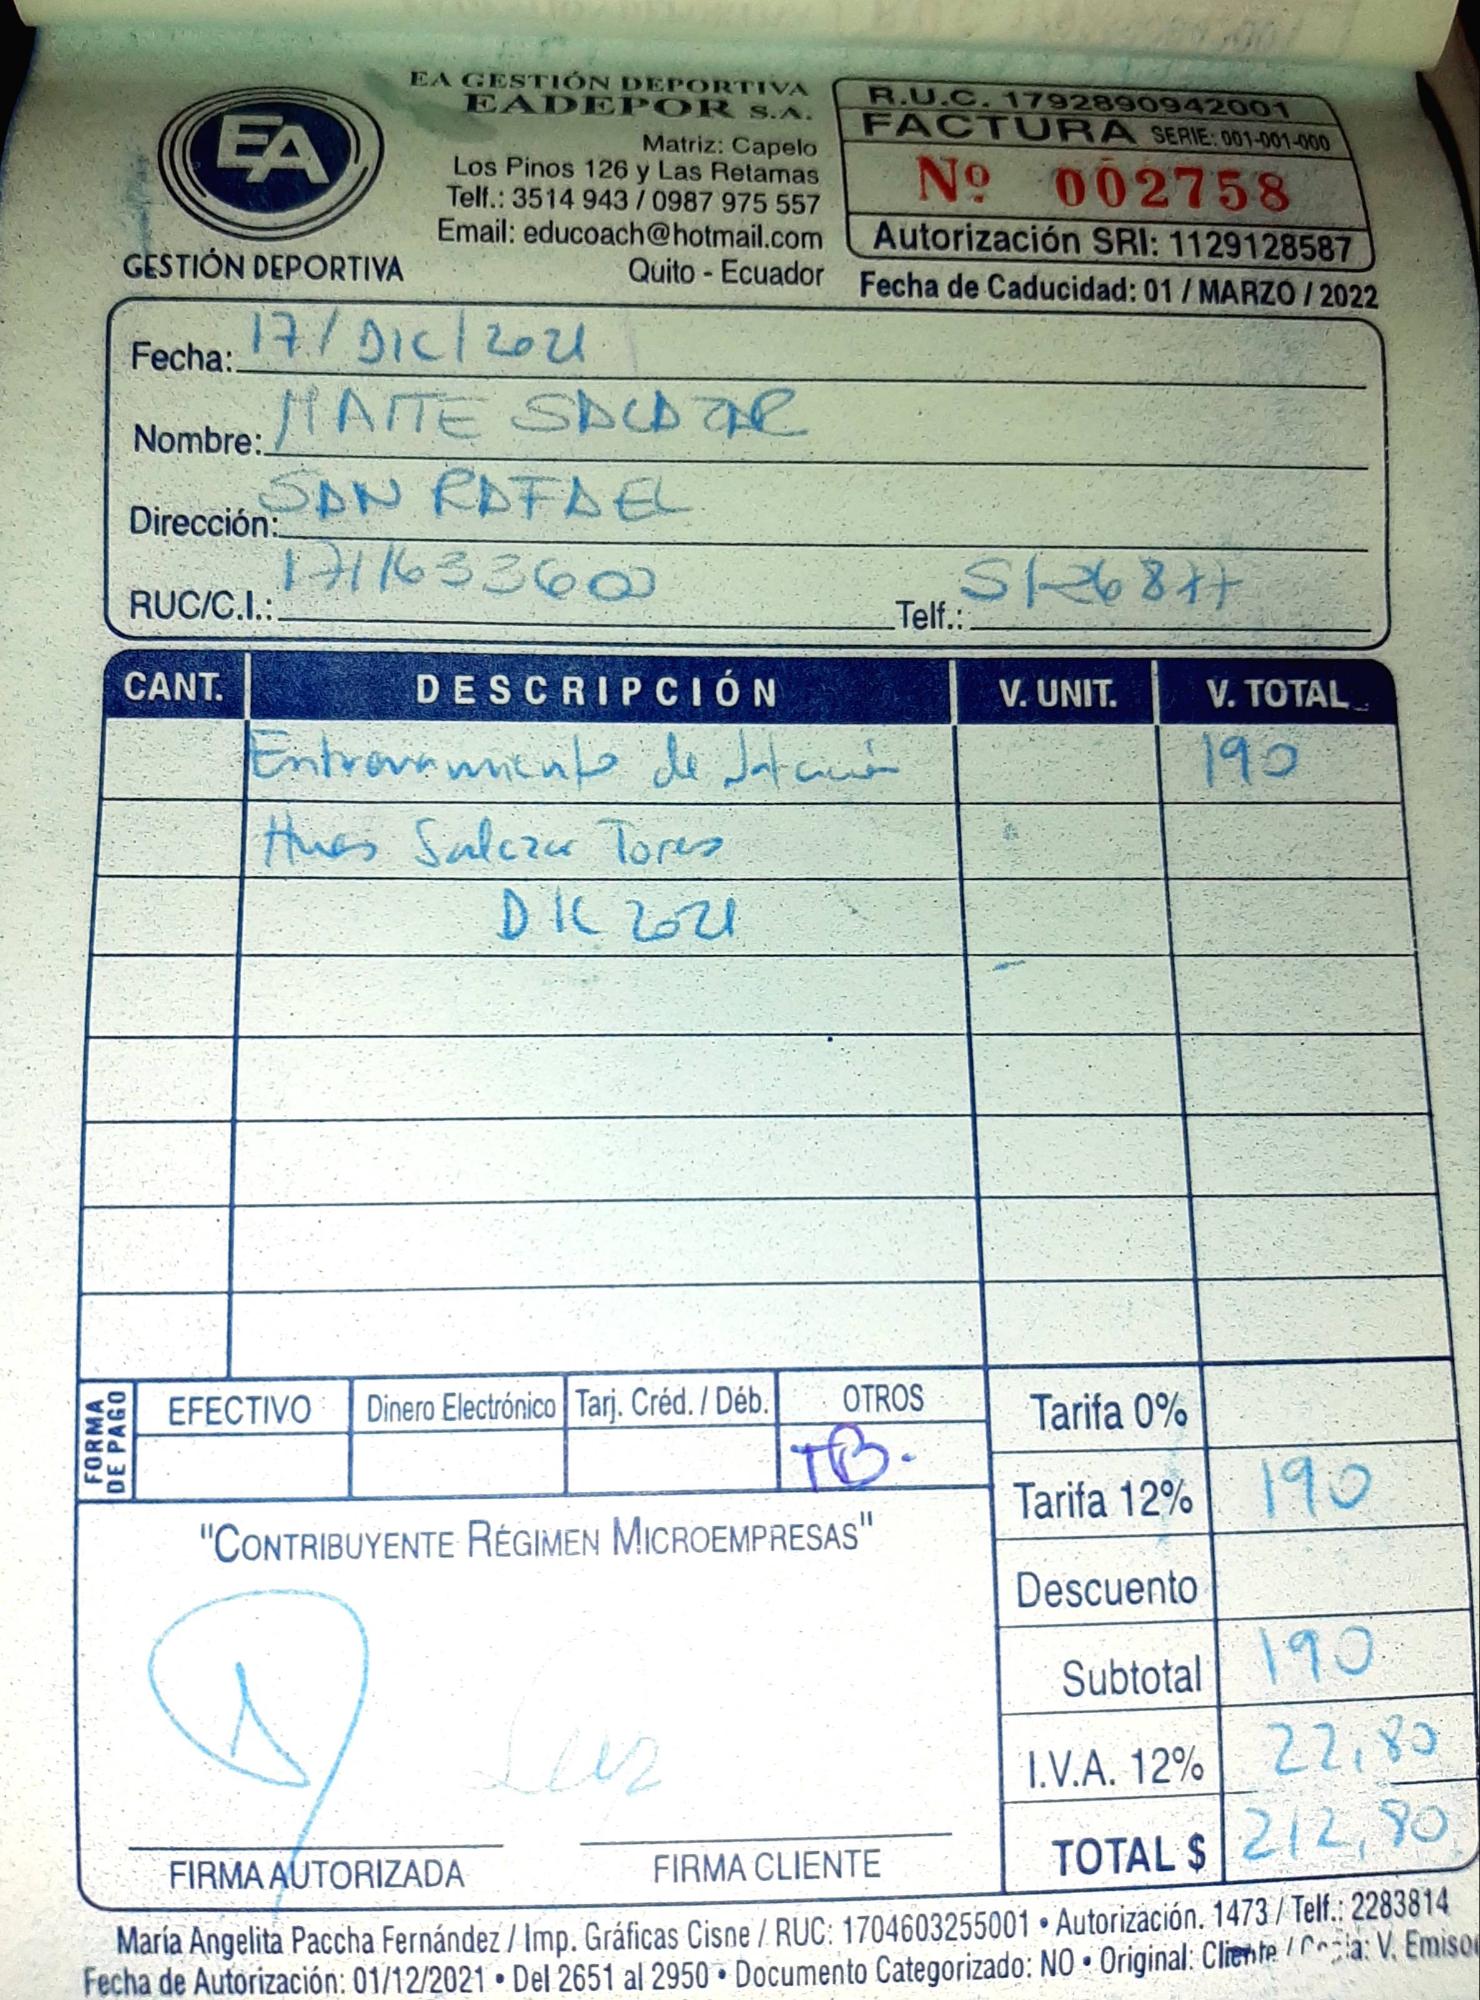 EA GESTIÓN DEPORTIVA
EADEPOR S.A.
Matriz: Capelo
Los Pinos 126 y Las Retamas
Telf.: 3514 943 / 0987 975 557
Email: educoach@hotmail.com
Quito - Ecuador
EA
GESTIÓN DEPORTIVA
R.U.C. 1792890942001
FACTURA SERIE: 001-001-000
Nº 002758
Autorización SRI: 1129128587
Fecha de Caducidad: 01 / MARZO / 2022
Fecha: 17/DIC/2021
Nombre: MAITE SALAZAR
Dirección: SAN RAFAEL
RUC/C.I.: 1711633600 Telf.:
CANT. DESCRIPCIÓN V. UNIT. V. TOTAL
Entrenamiento de 190
Salazar Torres
DIC 2021
FORMA DE PAGO EFECTIVO Dinero Electrónico Tarj. Créd. / Déb. OTROS
TB.
Tarifa 0%
Tarifa 12% 190
Descuento
Subtotal 190
I.V.A. 12% 22,80
TOTAL $ 212,80
"CONTRIBUYENTE RÉGIMEN MICROEMPRESAS"
FIRMA AUTORIZADA FIRMA CLIENTE
María Angelita Paccha Fernández / Imp. Gráficas Cisne / RUC: 1704603255001 • Autorización. 1473 / Telf.: 2283814
Fecha de Autorización: 01/12/2021 • Del 2651 al 2950 • Documento Categorizado: NO • Original: Cliente / Copia: V. Emiso